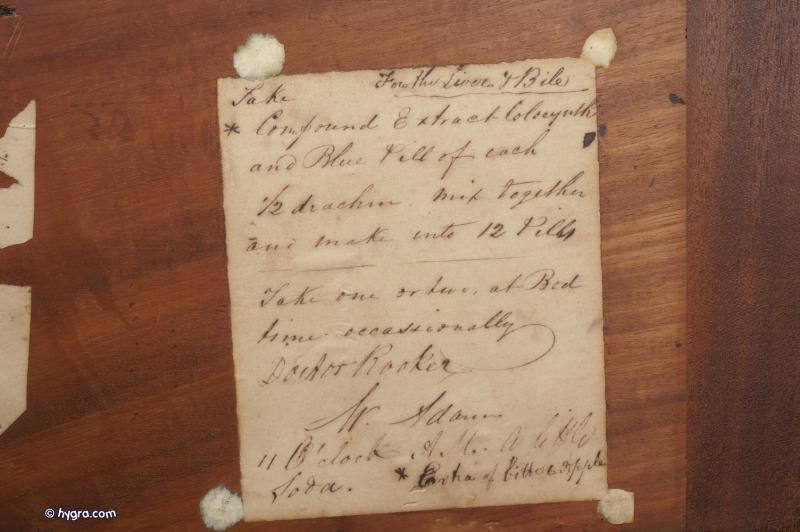 For the Liver & Bile
Take
* Compound Extract Colocynth
and Blue Pill of each
1/2 drachm. mix together
and make into 12 Pills
Take one or two. at Bed
time occassionally
Doctor Rooker
Adams
11 O'clock A.M. a little
Soda. * of bitter apple
© hygra.com